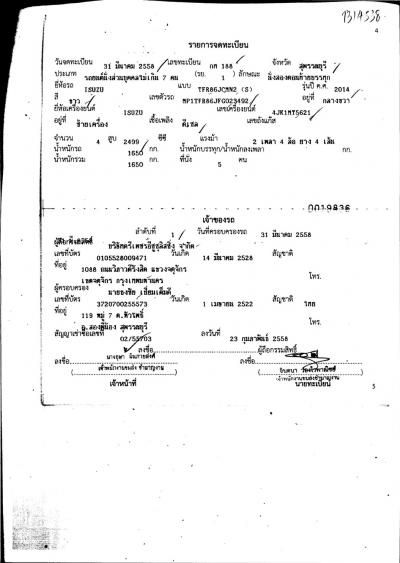 4
รายการจดทะเบียน
วันจดทะเบียน 31 มีนาคม 2558 เลขทะเบียน กศ 188 จังหวัด สุพรรณบุรี
ประเภท รถยนต์นั่งส่วนบุคคลไม่เกิน 7 คน (รย. 1 ) ลักษณะ นั่งสองตอนท้ายบรรทุก
ยี่ห้อรถ ISUZU แบบ TFR86JCMN2 (S) รุ่นปี ค.ศ. 2014
สี ขาว เลขตัวรถ MP1TFR86JFG023492 อยู่ที่ กลางขวา
ยี่ห้อเครื่องยนต์ ISUZU เลขเครื่องยนต์ 4JK1MT5621
อยู่ที่ ซ้ายเครื่อง เชื้อเพลิง ดีเซล เลขถังแก๊ส
จำนวน 4 สูบ 2499 ซีซี แรงม้า 2 เพลา 4 ล้อ ยาง 4 เส้น
น้ำหนักรถ 1650 กก. น้ำหนักบรรทุก/น้ำหนักลงเพลา กก.
น้ำหนักรวม 1650 กก. ที่นั่ง 5 คน
0019836
เจ้าของรถ
ลำดับที่ 1 วันที่ครอบครองรถ 31 มีนาคม 2558
ผู้ถือกรรมสิทธิ์
เลขที่บัตร 0105528009471 วันเกิด 14 มีนาคม 2528 สัญชาติ
ที่อยู่ 1088 ถนนวิภาวดีรังสิต แขวงจตุจักร
เขตจตุจักร กรุงเทพมหานคร โทร.
ผู้ครอบครอง
เลขที่บัตร 3720700255573 วันเกิด 1 เมษายน 2522 สัญชาติ ไทย
ที่อยู่ 119 หมู่ 7
อ.สองพี่น้อง สุพรรณบุรี โทร.
สัญญาเช่าซื้อเลขที่ ลงวันที่ 23 กุมภาพันธ์ 2558
ลงชื่อ ผู้ถือกรรมสิทธิ์
ลงชื่อ ลงชื่อ
เจ้าพนักงานขนส่งชำนาญงาน
เจ้าหน้าที่ นายทะเบียน
5